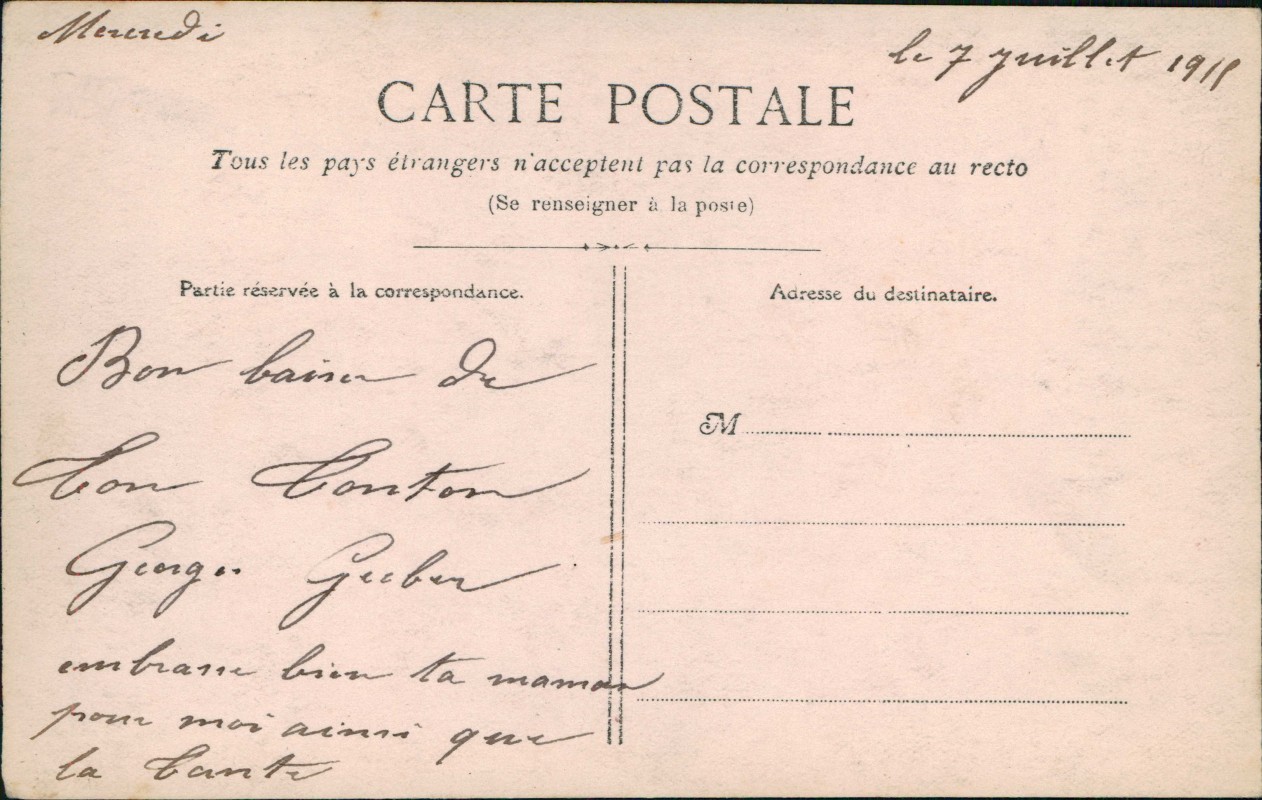 Mercredi
le 7 Juillet 1915
CARTE POSTALE
Tous les pays étrangers n'acceptent pas la correspondance au recto
(Se renseigner à la poste)
Partie réservée à la correspondance.
Adresse du destinataire.
Bon baiser de
ton Tonton
Georges
M
embrasse bien ta maman
pour moi ainsi que
la tante